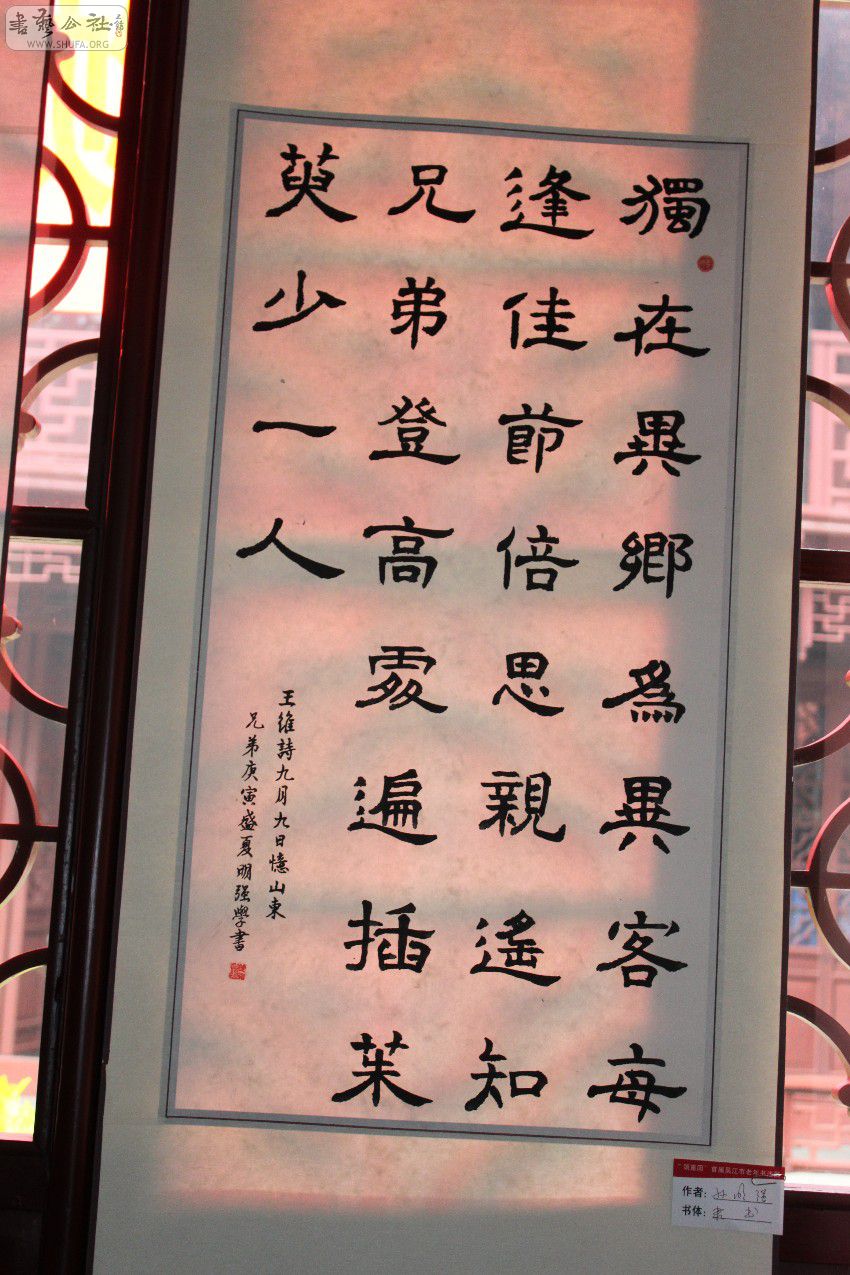 書藝公社
WWW.SHUFA.ORG
獨在異鄉為異客每
逢佳節倍思親遙知
兄弟登高處遍插茱
萸少一人
王維詩九月九日憶山東
兄弟庚寅盛夏明强學書
首届吴江市老年书法
作者:
书体: 隶书